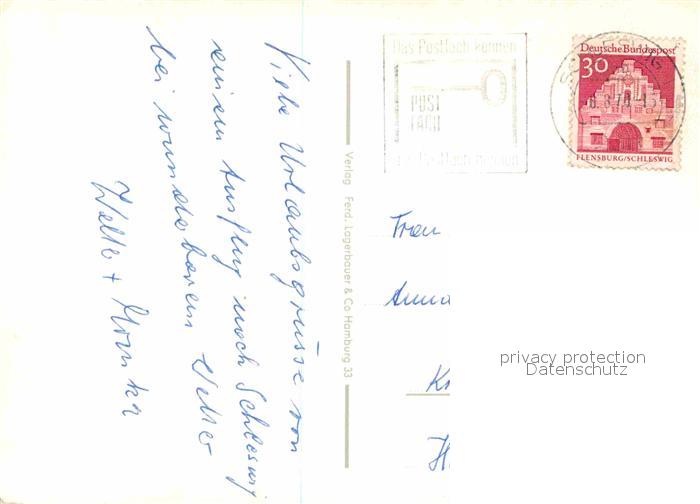 Viele Urlaubsgrüsse von
einem Ausflug nach Schleswig
bei wunderbarem Wetter
Walter + Monika
Verlag Ferd. Lagerbauer & Co Hamburg 33
Das Postfach kennen
POST
FACH
das Postfach nennen
Deutsche Bundespost
30
FLENSBURG/SCHLESWIG
Frau
Anna
privacy protection
Datenschutz